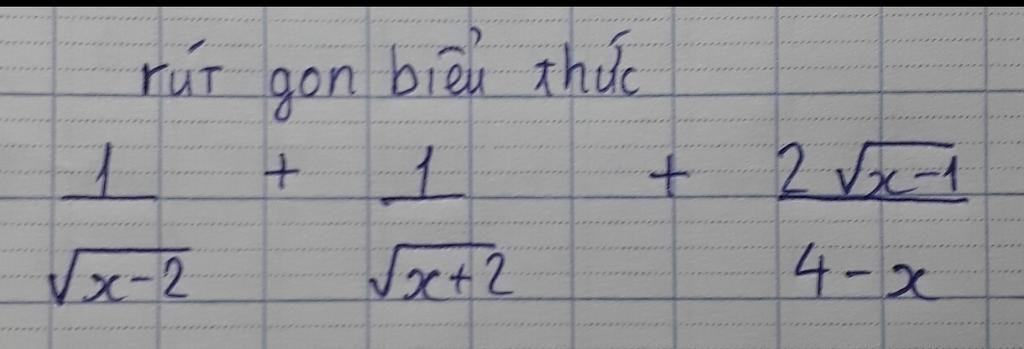 rút gon biểu thức
1 + 1 + 2√x-1
√x-2 √x+2 4-x